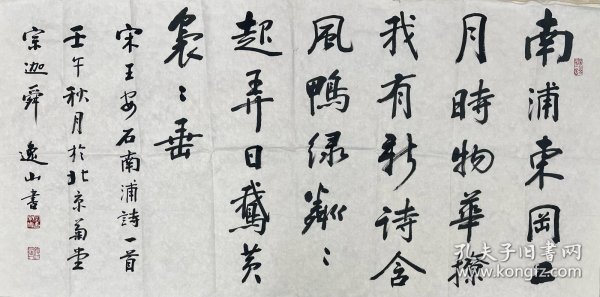 南浦東岡二
月時物華撩
我有新詩含
風鴨绿粼〻
起弄日鵞黄
裊〻垂
宋王安石南浦詩一首
壬午秋月於北京菊堂
宗迦舜 逸山書
孔夫子旧书网
www.kongfz.com